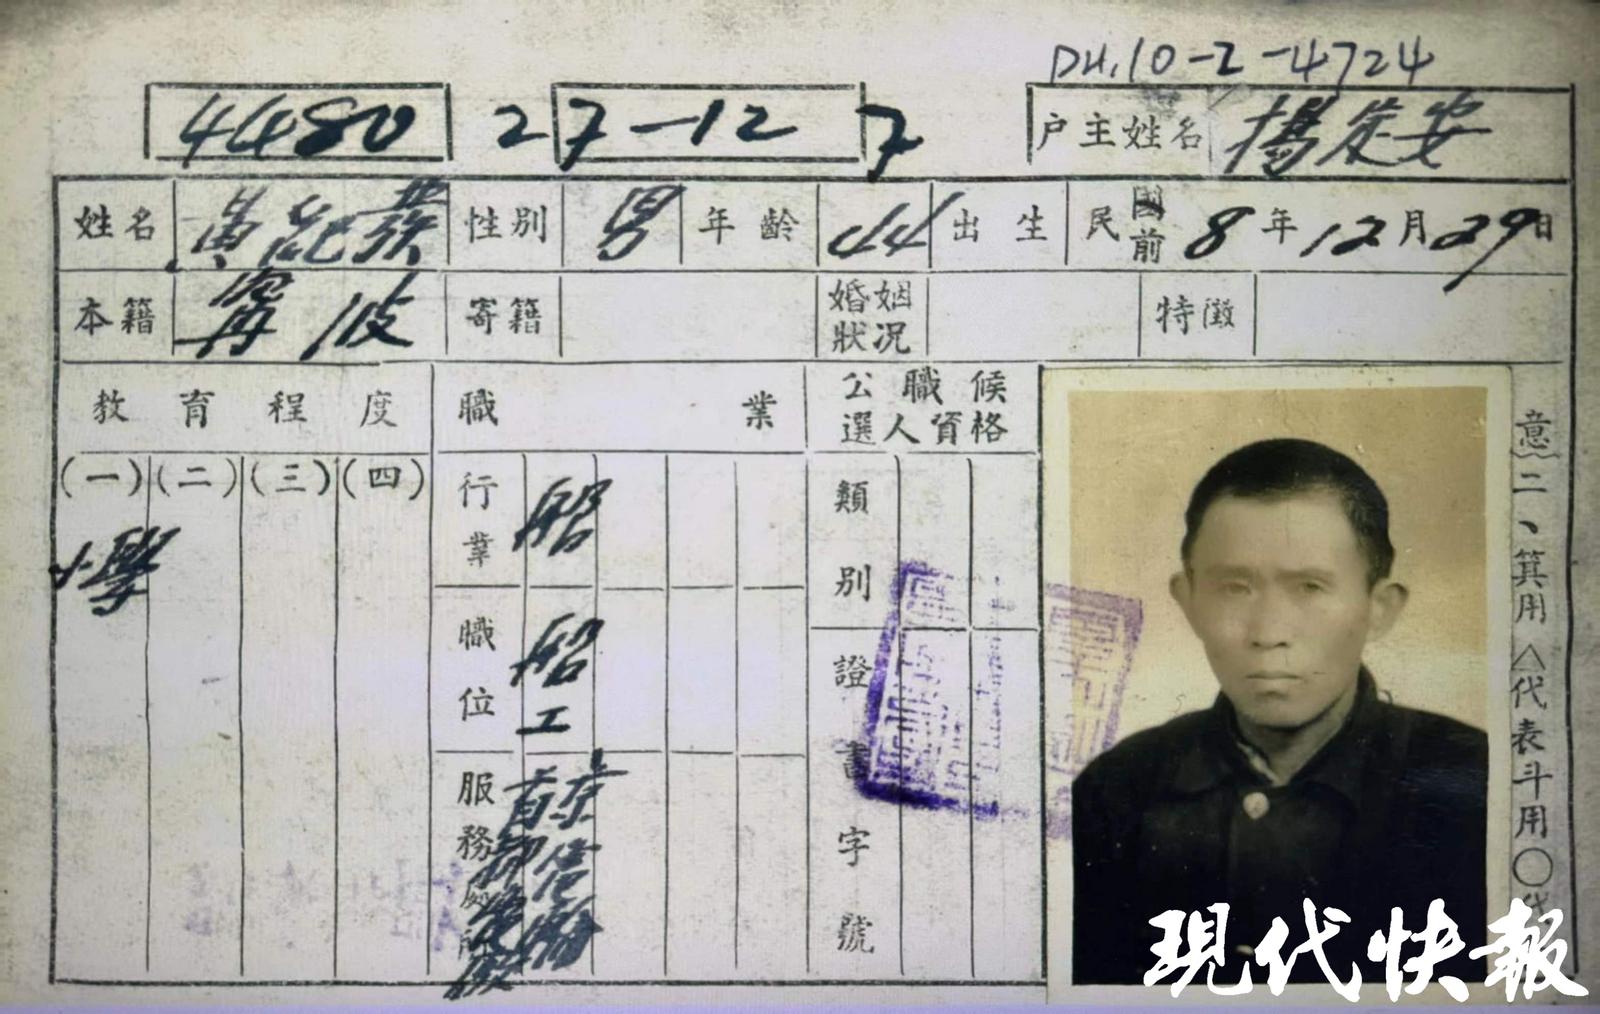 DH.10-2-4724
4480 27-12 7 户主姓名 楊定安
姓名 黃能發 性別 男 年齡 44 出生 民國前 8 年 12 月 29 日
本籍 寗波 寄籍 婚姻狀況 特徵
教育程度 職業 公職候選人資格
(一) (二) (三) (四)
小學
行業 船
職位 船工
服務處所 首京
類別
證書字號
意二、箕用△代表斗用○代
現代快報